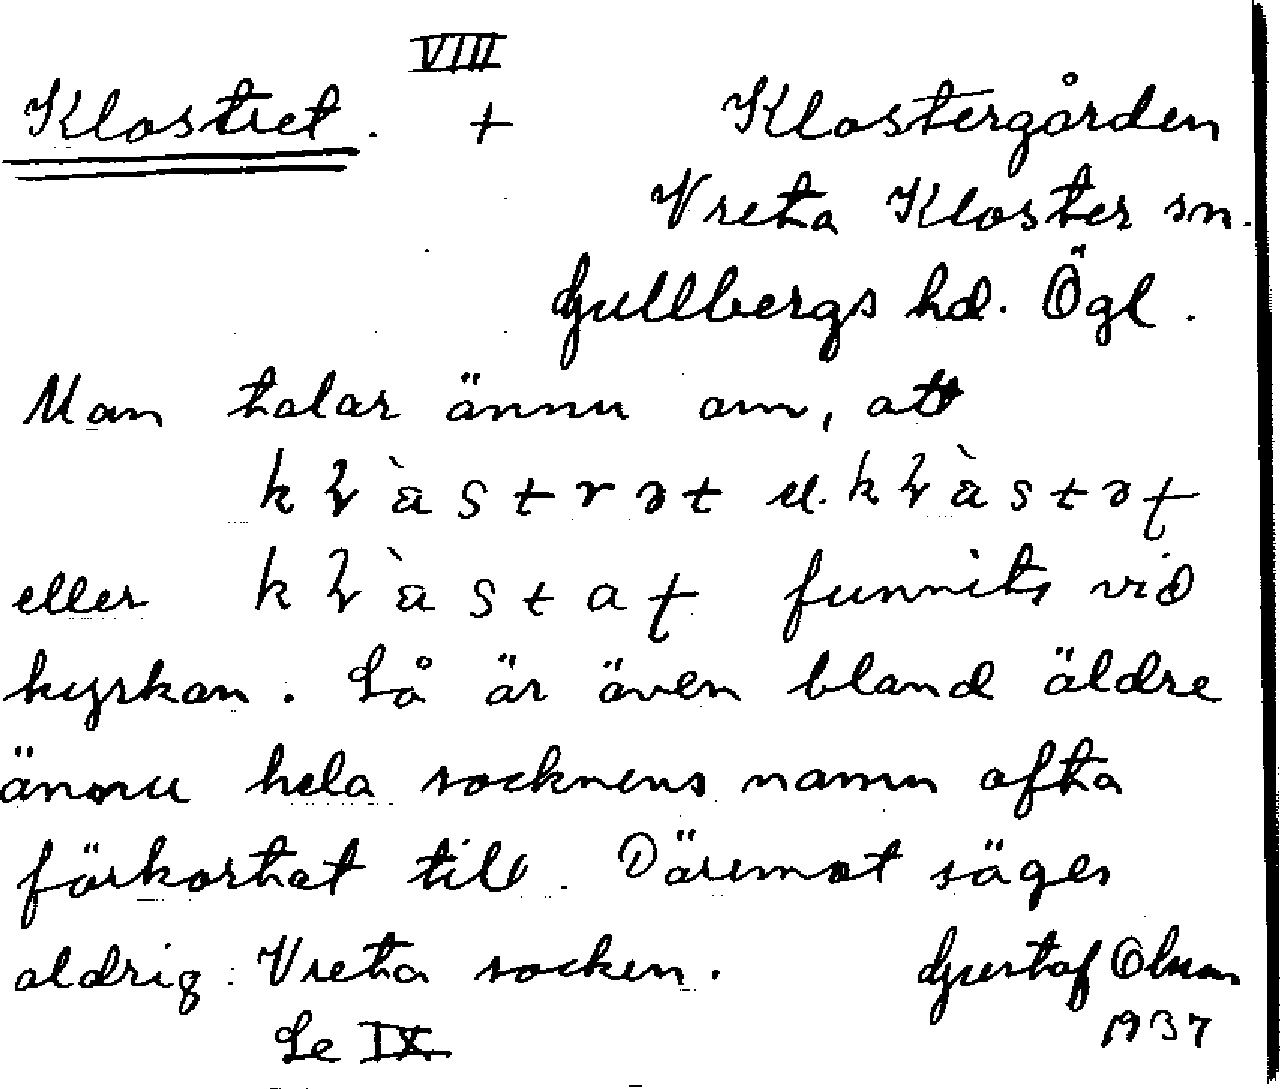 VIII
Klostret. + Klostergården
Vreta Kloster sn.
Gullbergs hd. Ögl.
Man talar ännu om, att
el.
eller funnits vid
kyrkan. Så är även bland äldre
ännu hela socknens namn ofta
förkortat till. Däremot säges
aldrig: Vreta socken. Gustaf Olson
Se IX. 1937